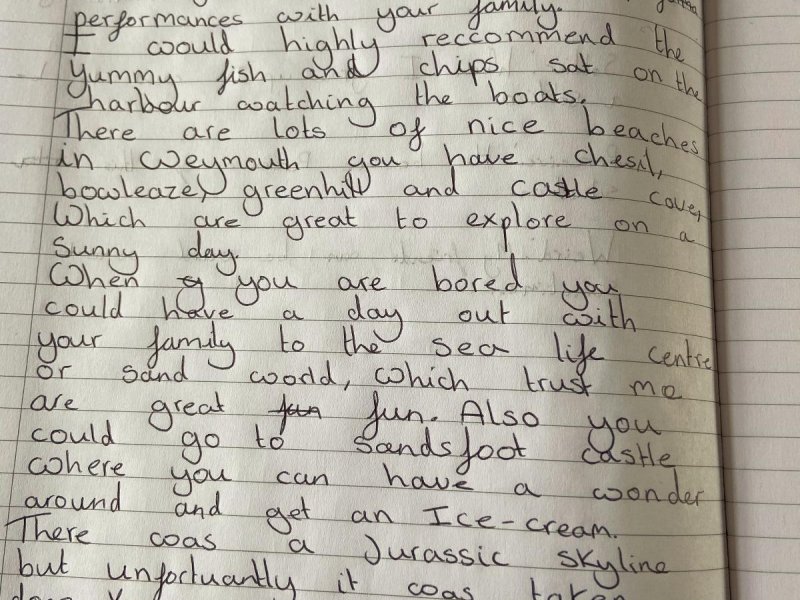 performances with your family.
I would highly reccommend the
yummy fish and chips sat on the
harbour watching the boats.
There are lots of nice beaches
in Weymouth you have chesil,
bowleaze, greenhill and castle cove,
Which are great to explore on a
Sunny day.
When you are bored you
could have a day out with
your family to the sea life centre
or sand world, which trust me
are great fun fun. Also you
could go to Sandsfoot castle
where you can have a wonder
around and get an Ice-cream.
There was a Jurassic skyline
but unfortuantly it was taken